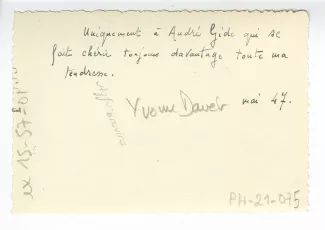 Uniquement à André Gide qui se
fait chérir toujours davantage toute ma
tendresse.
Yvonne Davet mai 47.
PH-21-075